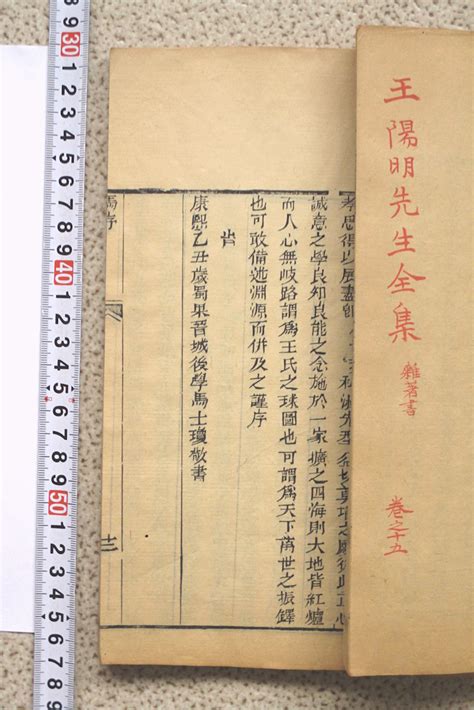 王陽明先生全集 雜著書 卷之十五
孝思得以展盡
誠意之學良知良能之念施於一家擴之四海則大地皆紅爐
而人心無岐路謂為王氏之球圖也可謂為天下萬世之振鐸
也可敢備述淵源而併及之謹序
旹
康熙乙丑歲蜀果晉城後學馬士瓊敬書
馬序
9 30 1 2 3 4 5 6 7 8 9 40 1 2 3 4 5 6 7 8 9 50 1 2 3 4 5 6 7 8